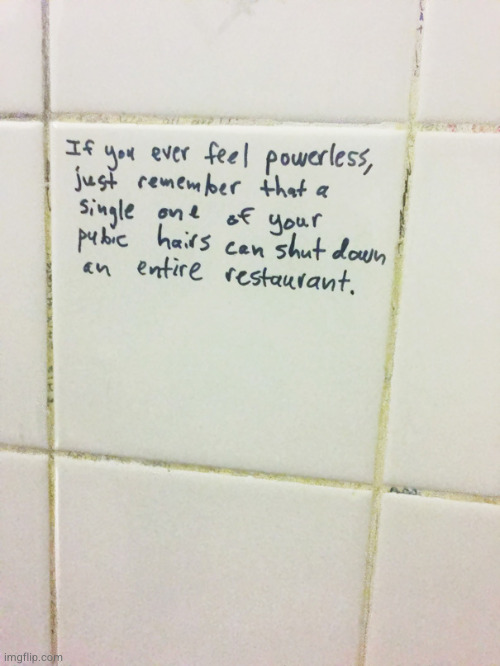 If you ever feel powerless,
just remember that a
single one of your
pubic hairs can shut down
an entire restaurant.
imgflip.com